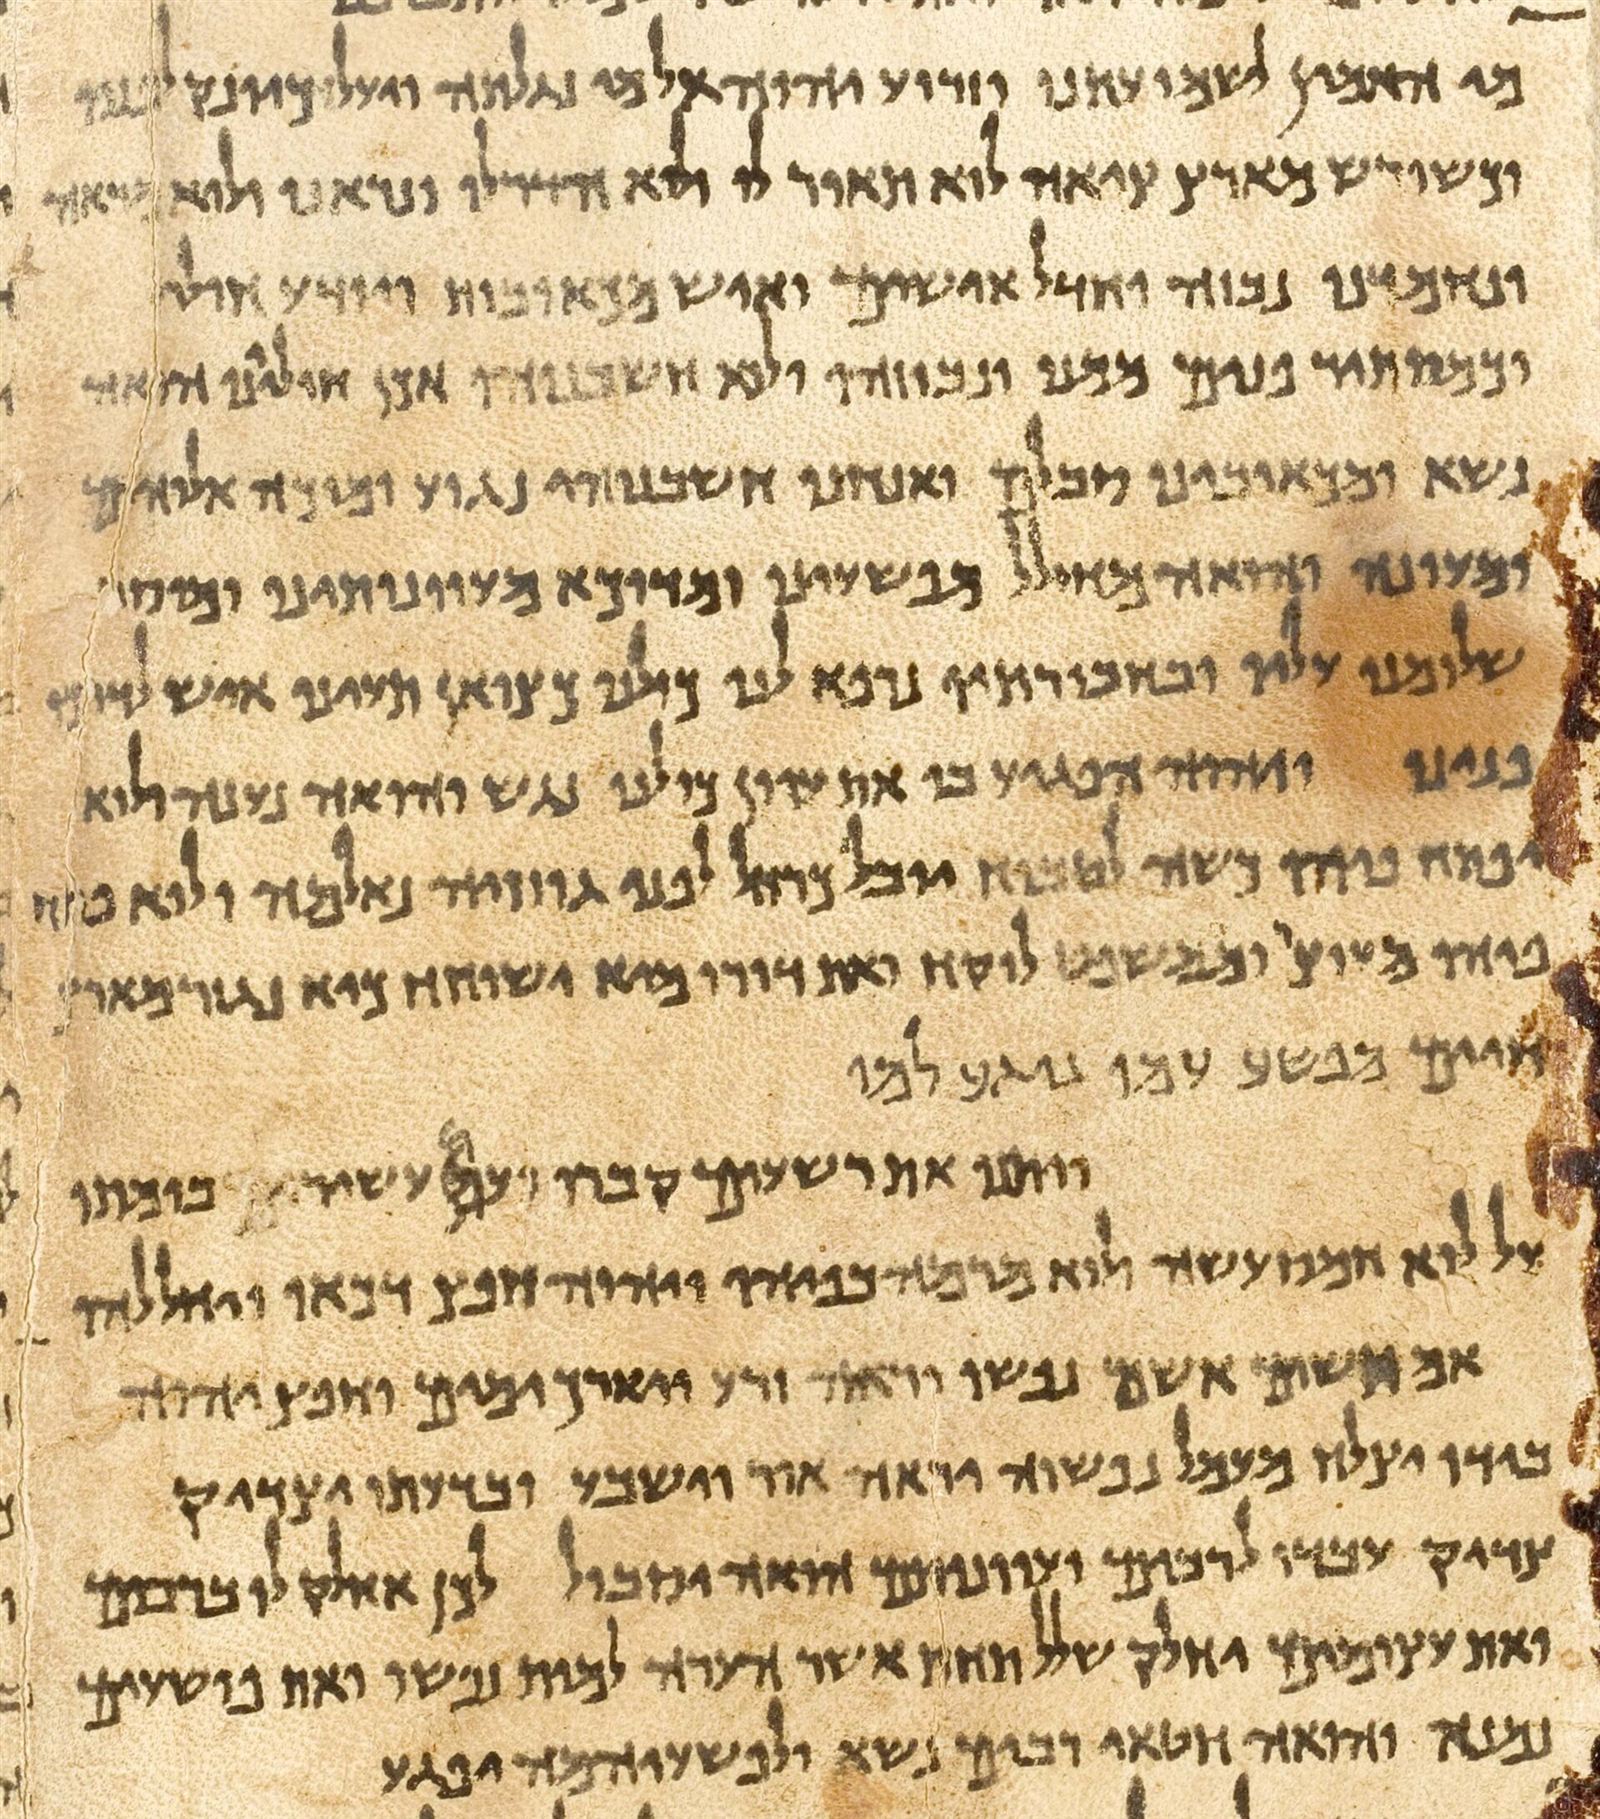 מי האמין לשמועתנו וזרוע יהוה אל מי נגלתה ויעל כיונק לפניו
וכשורש מארץ ציאה לוא תואר לו ולוא הדר לו ונראנו ולוא מראה
ונחמדנו נבזה וחדל אישים ואיש מכאובות ויודע חולי
וכמסתיר פנים ממנו ונבוזהו ולוא חשבנוהו אכן חוליינו הואה
נשא ומכאובינו סבלם ואנחנו חשבנוהו נגוע ומוכה אלוהים
ומעונה והואה מחולל מפשעינו ומדוכא מעוונותינו ומוסר
שלומנו עליו ובחבורתיו נרפא לנו כולנו כצואן תעינו איש לדרכו
פנינו ויהוה הפגיע בו את עוון כולנו נגש והואה נענה ולוא
יפתח פיהו כשה לטבוח יובל כרחל לפני גוזזיה נאלמה ולוא פתח
פיהו מעוצר וממשפט לוקח ואת דורו מיא ישוחח כיא נגזר מארץ
חיים מפשע עמו נוגע למו
ויתנו את רשעים קברו ועם עשיר בומתו
על לוא חמס עשה ולוא מרמה בפיהו ויהוה חפץ דכאו ויחללהו
אם תשים אשם נפשו יראה זרע ויארך ימים וחפץ יהוה
בידו יצלח מעמל נפשוה יראה אור וישבע ובדעתו יצדיק
צדיק עבדו לרבים ועוונותם הואה יסבול לכן אחלק לו ברבים
ואת עצומים יחלק שלל תחת אשר הערה למות נפשו ואת פושעים
נמנא והואה חטאי רבים נשא ולפשעיהמה יפגע